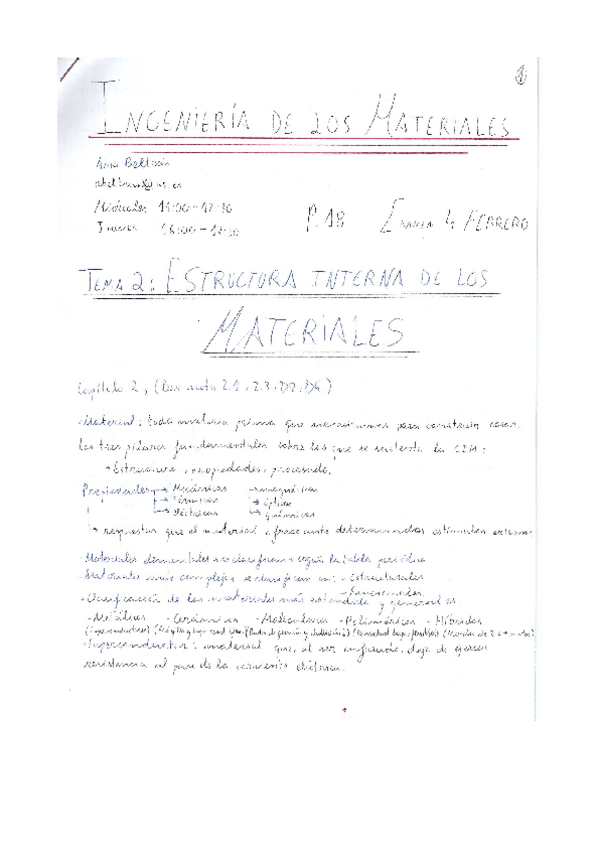 1
INGENIERÍA DE LOS MATERIALES
Ana Beltrán
Miércoles 11:00-12:30
Jueves 16:00-17:30
P.18 Examen 4 FEBRERO
TEMA 2: ESTRUCTURA INTERNA DE LOS
MATERIALES
Capítulo 2, (Leer
·Material: toda materia prima que necesitamos para construir cosas.
Los tres pilares fundamentales sobre los que se sustenta la CIM:
→ Estructura, propiedades, procesado.
Propiedades → Mecánicas → magnéticas
→ Térmicas → ópticas
→ Eléctricas → Químicas
↳ respuestas que el material ofrece ante determinados estímulos externos
·Materiales elementales → se clasifican según la tabla periódica
·Materiales más complejos se clasifican en: - Estructurales
- Funcionales
·Clasificación de los materiales más extendida y general
-Metálicos -Cerámicos -Moleculares -Poliméricos -Híbridos
(Superconductores) (Mezclas de 2 o + mat.)
·Superconductor: material que, al ser enfriado, deja de ejercer
resistencia al paso de la corriente eléctrica.